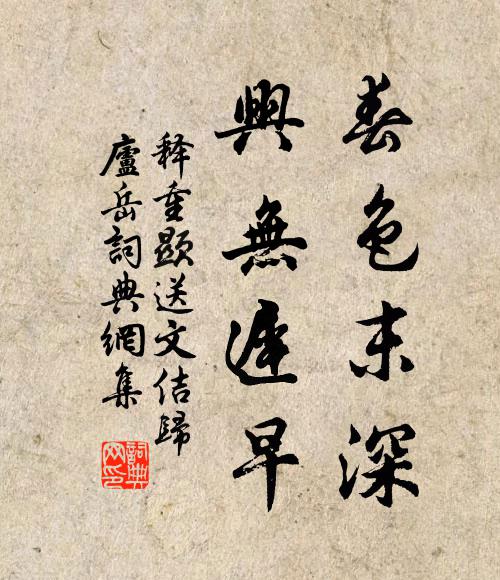 春色未深
興無遲早
釋重顯送文佶歸
廬岳詞典網集
詞典網印